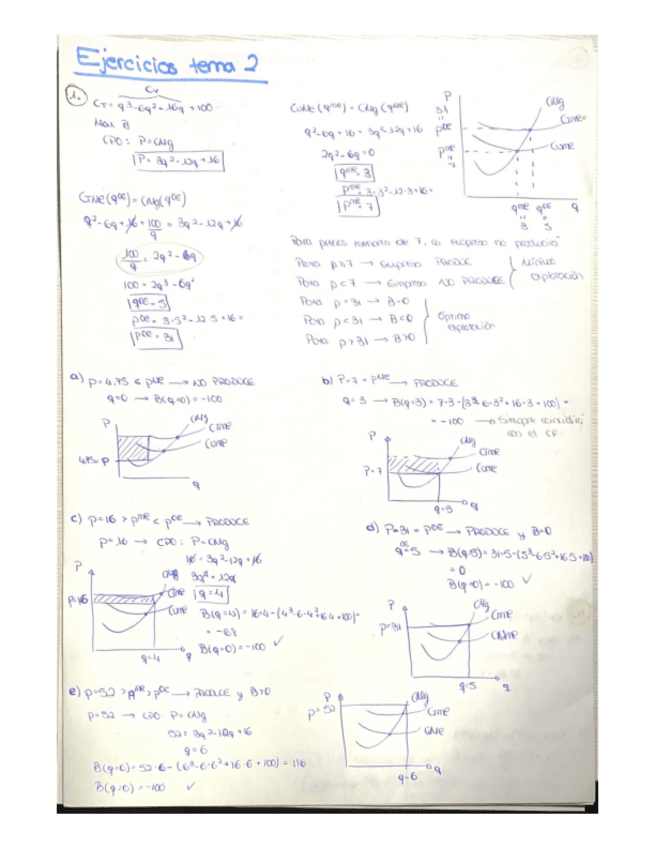 Ejercicios tema 2
1.
Cv
CT = q³-6q²+16q+100
Max B
CPO: P=CMg
P = 3q²-12q+16
CTMe(qᴼᴱ) = CMg(qᴼᴱ)
q²-6q+16+100/q = 3q²-12q+16
100/q = 2q²-6q
100 = 2q³-6q²
qᴼᴱ=5
pᴼᴱ= 3·5²-12·5+16=
pᴼᴱ=31
CVMe(qᴹᴱ) = CMg(qᴹᴱ)
q²-6q+16 = 3q²-12q+16
2q²-6q=0
qᴹᴱ=3
pᴹᴱ=3·3²-12·3+16=
pᴹᴱ=7
P
31
"
pᴼᴱ
pᴹᴱ
"
7
CMg
CTMe
CVMe
qᴹᴱ qᴼᴱ q
" "
3 5
Para precios menores de 7, la empresa no producirá
Para p≥7 → Empresa PRODUCE
Para p<7 → Empresa NO PRODUCE
Mínimo
explotación
Para p=31 → B=0
Para p<31 → B<0
Para p>31 → B>0
Óptimo
explotación
a) p=4.75 < pᴹᴱ → NO PRODUCE
q=0 → B(q=0)=-100
P
4.75=P
CMg
CTMe
CVMe
q
b) P=7=pᴹᴱ → PRODUCE
q=3 → B(q=3)= 7·3-(3³-6·3²+16·3+100)=
= -100 → Siempre coincidirá
con el CF
P
P=7
CMg
CTMe
CVMe
q=3 q
c) p=16 > pᴹᴱ < pᴼᴱ → PRODUCE
p=16 → CPO: P=CMg
16=3q²-12q+16
3q²=12q
q=4
B(q=4)=16·4-(4³-6·4²+16·4+100)=
= -68
B(q=0)=-100 ✓
P
P=16
CMg
CTMe
CVMe
q=4 q
d) P=31=pᴼᴱ → PRODUCE y B=0
qᴼᴱ=5 → B(q=5)=31·5-(5³-6·5²+16·5+100)
= 0
B(q=0)=-100 ✓
P
P=31
CMg
CTMe
CVMe
q=5 q
e) p=52 > pᴹᴱ, pᴼᴱ → PRODUCE y B>0
p=52 → CPO: P=CMg
52=3q²-12q+16
q=6
B(q=6)=52·6-(6³-6·6²+16·6+100)=116
B(q=0)=-100 ✓
P
P=52
CMg
CTMe
CVMe
q=6 q